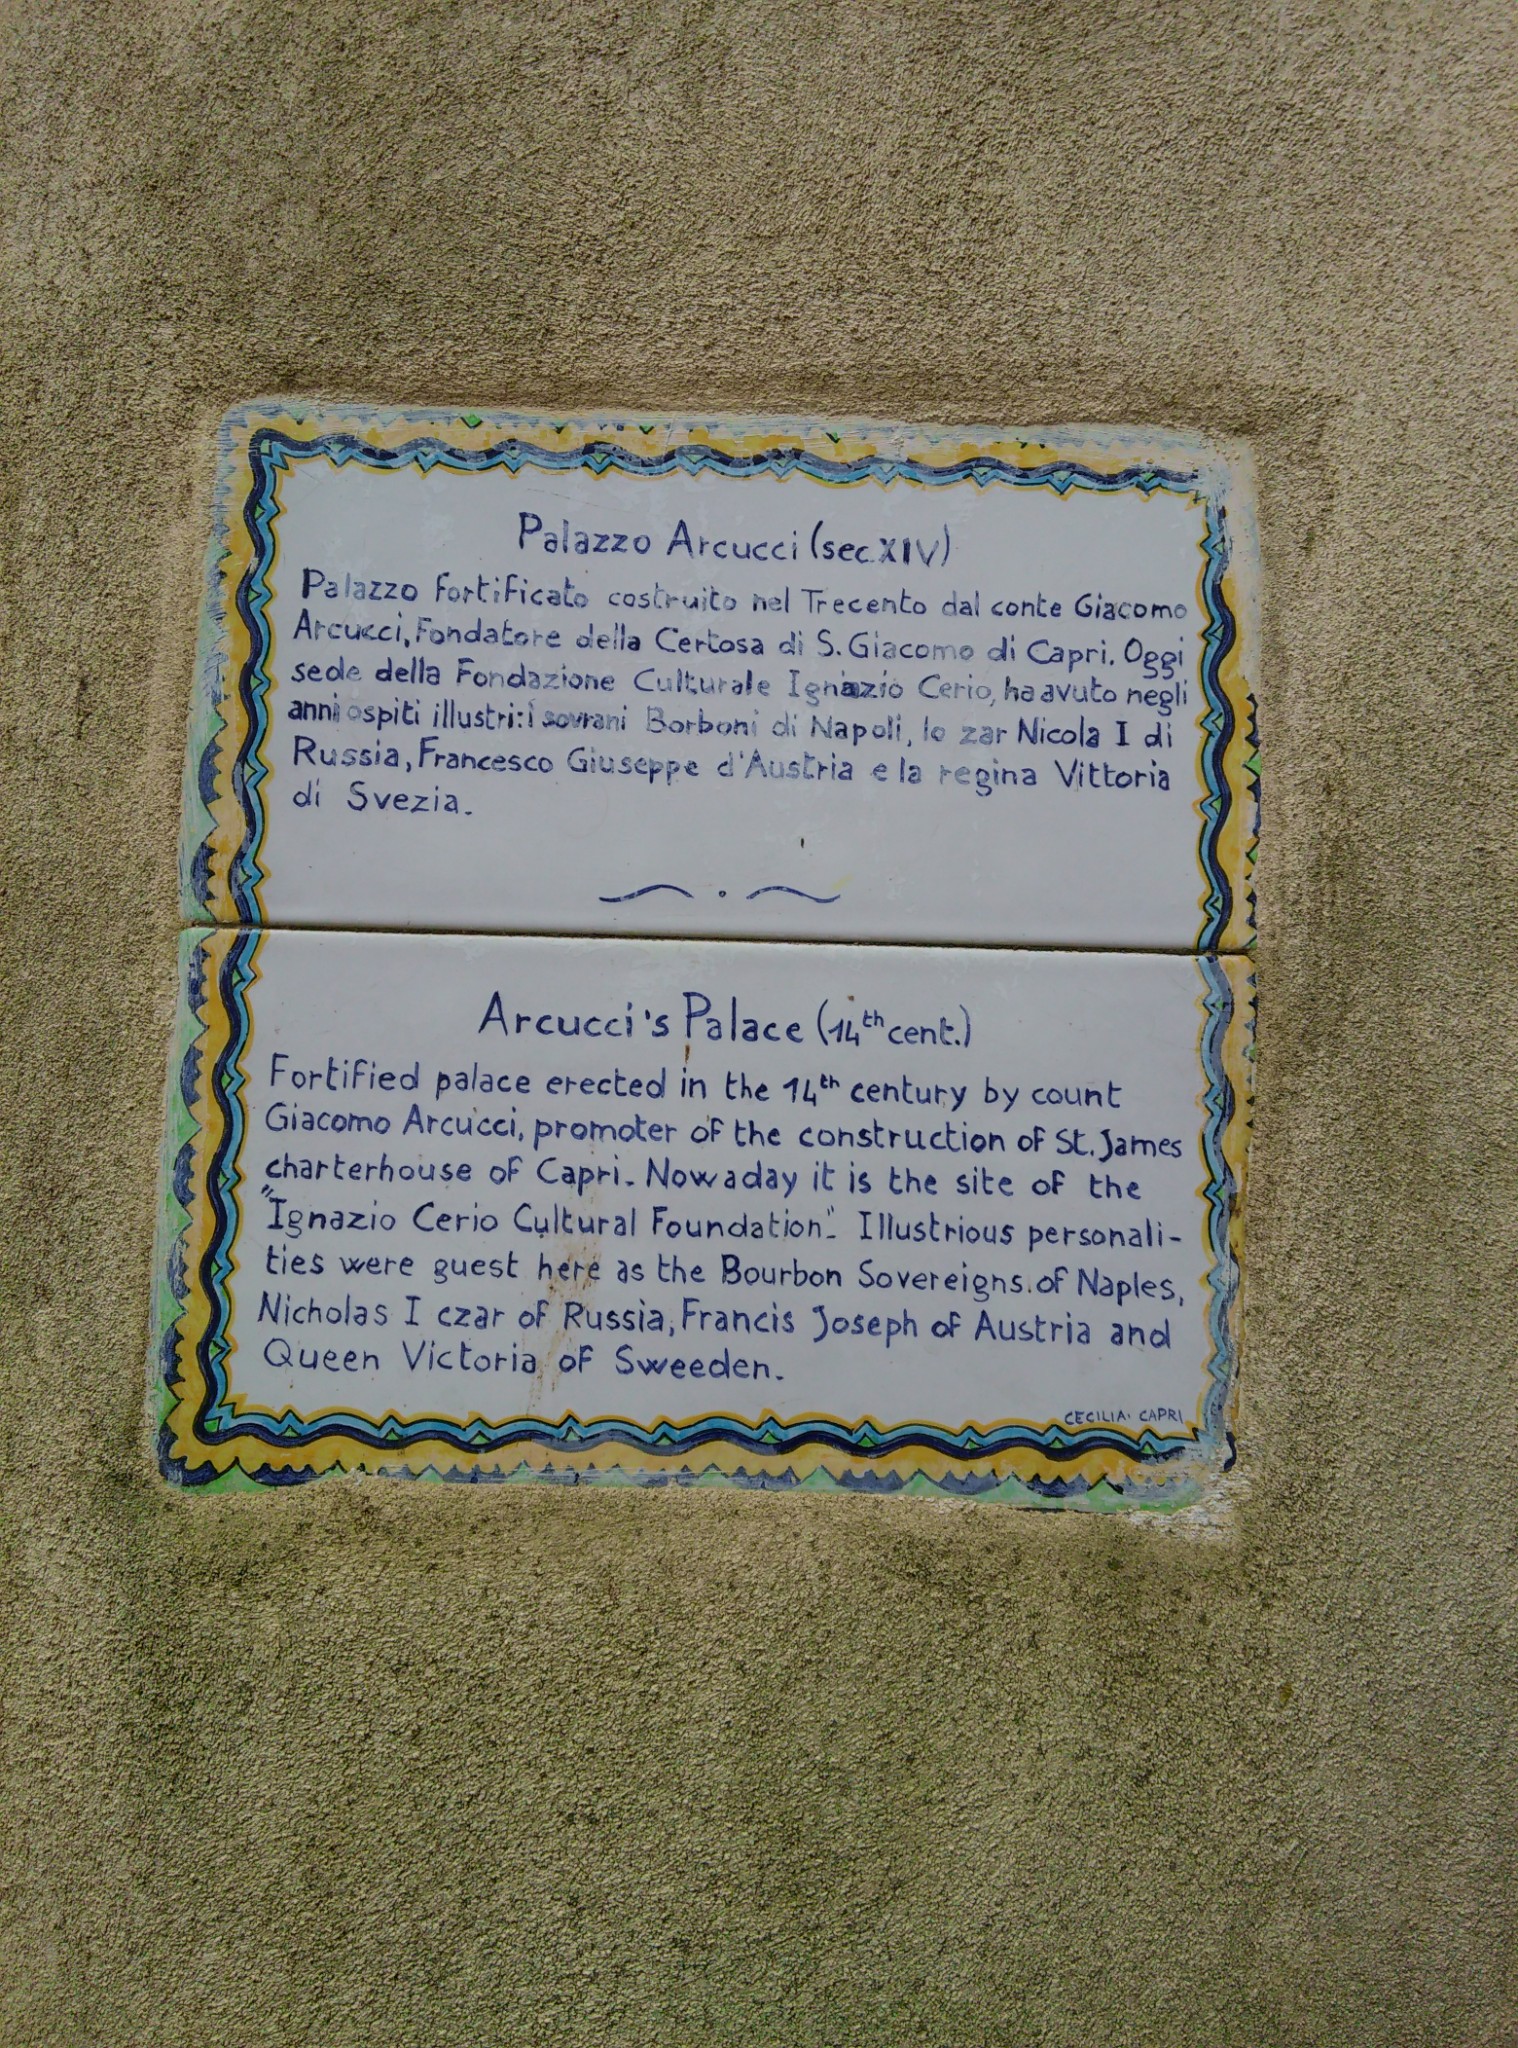 Palazzo Arcucci (sec. XIV)
Palazzo fortificato costruito nel Trecento dal conte Giacomo
Arcucci, Fondatore della Certosa di S. Giacomo di Capri. Oggi
sede della Fondazione Culturale Ignazio Cerio, ha avuto negli
anni ospiti illustri: i sovrani Borboni di Napoli, lo zar Nicola I di
Russia, Francesco Giuseppe d'Austria e la regina Vittoria
di Svezia.
Arcucci's Palace (14th cent.)
Fortified palace erected in the 14th century by count
Giacomo Arcucci, promoter of the construction of St. James
charterhouse of Capri. Nowaday it is the site of the
"Ignazio Cerio Cultural Foundation". Illustrious personali-
ties were guest here as the Bourbon Sovereigns of Naples,
Nicholas I czar of Russia, Francis Joseph of Austria and
Queen Victoria of Sweeden.
CECILIA. CAPRI